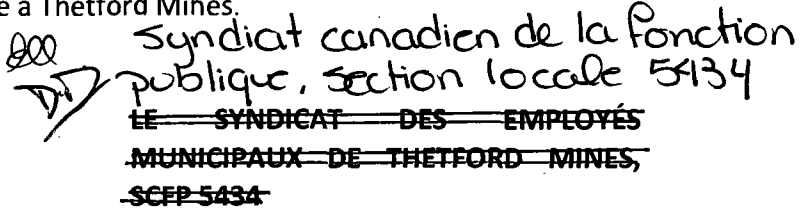 e à Thetford Mines.
Syndicat canadien de la fonction
publique, section locale 5434
LE SYNDICAT DES EMPLOYÉS
MUNICIPAUX DE THETFORD MINES,
SCFP 5434